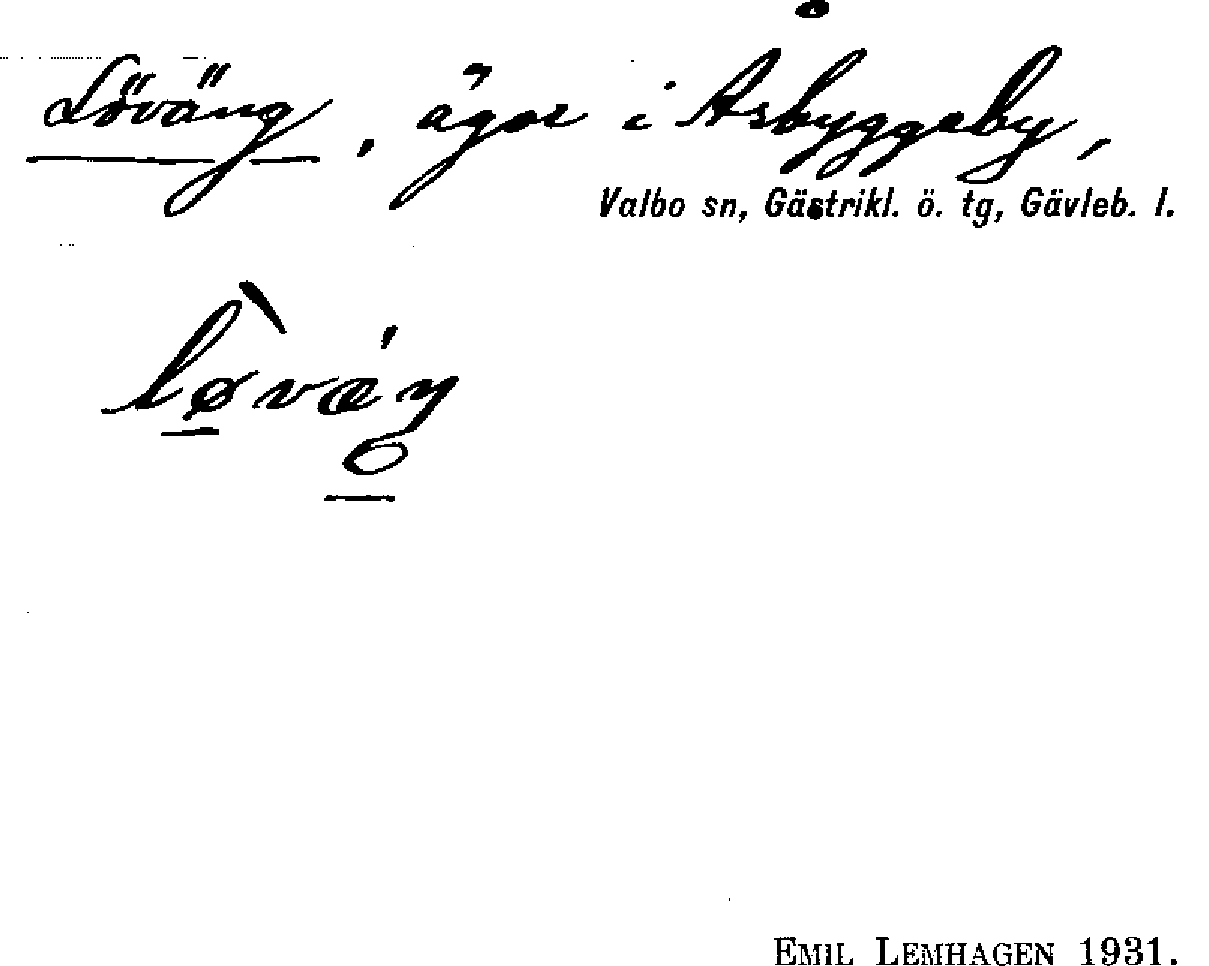 Löväng, ägor i Åsbyggeby,
Valbo sn, Gästrikl. ö. tg, Gävleb. l.
lø̀vǽŋ
EMIL LEMHAGEN 1931.